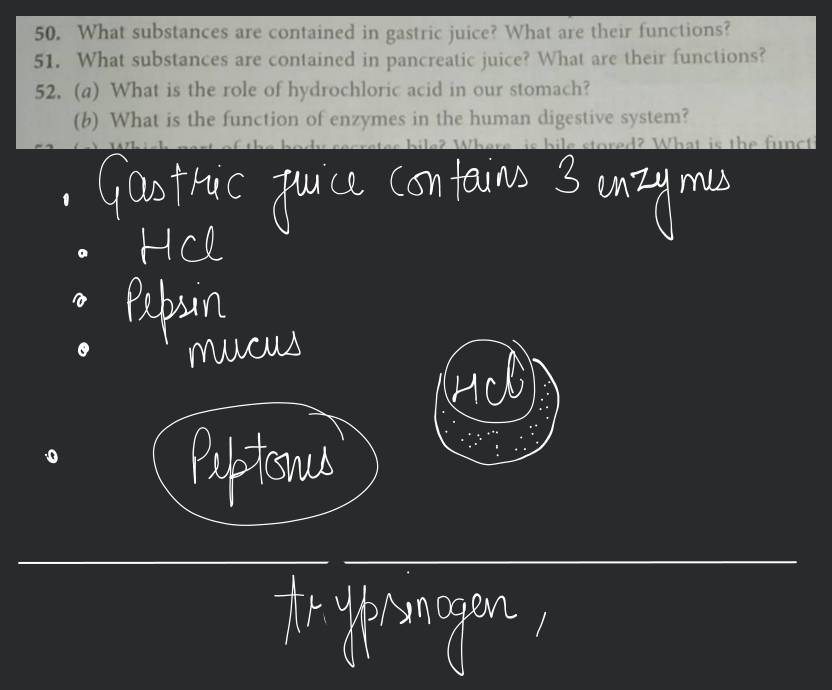 50. What substances are contained in gastric juice? What are their functions?
51. What substances are contained in pancreatic juice? What are their functions?
52. (a) What is the role of hydrochloric acid in our stomach?
(b) What is the function of enzymes in the human digestive system?
of the body secretes bile? Where is bile stored? What is the
Gastric juice contains 3 enzymes
• HCl
• Pepsin
• mucus
HCl
• Peptones
trypsinogen,